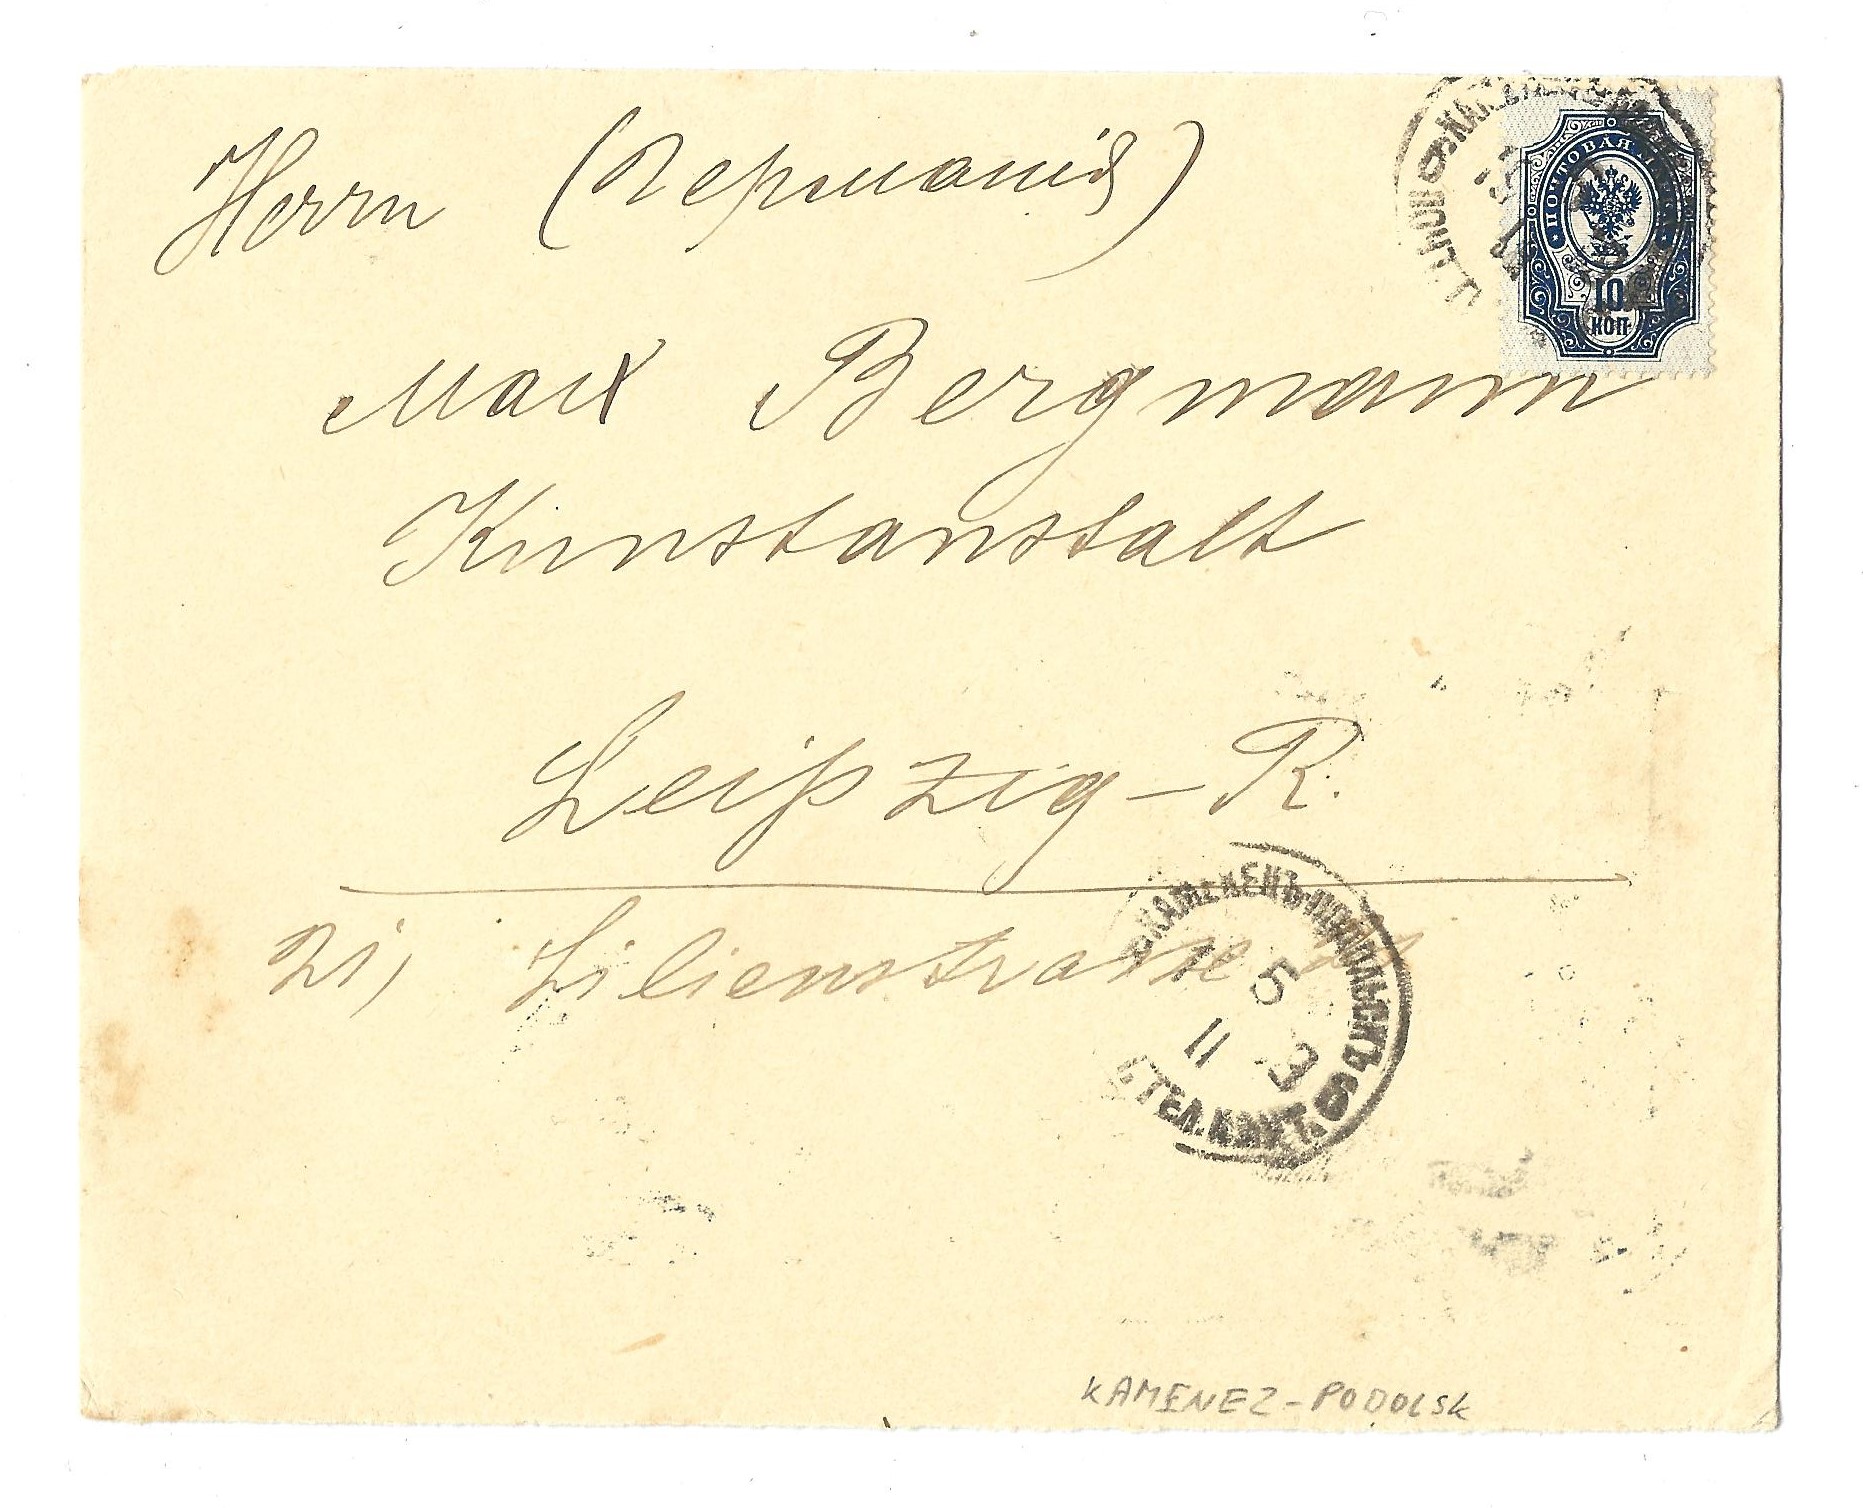 Herrn (Германія)
ПОЧТОВАЯ МАРКА
10
КОП
Max Bergmann
Kunstanstalt
Leipzig-R.
21, Lilienstrasse 21
КАМЕНЕЦЪ-ПОДОЛЬСКЪ
5
11 3
П.ТЕЛ.КОНТ. 6
KAMENEZ-PODOLSK